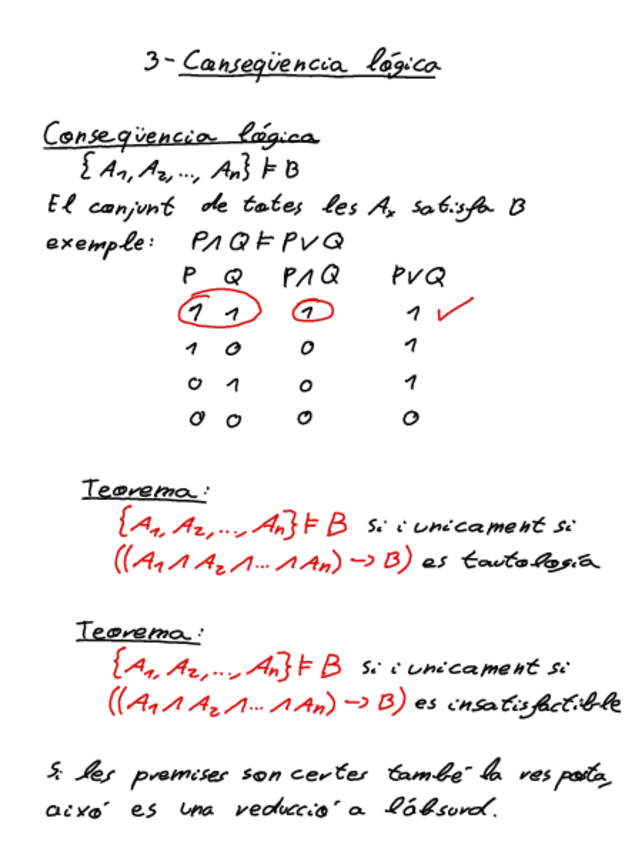 3- Conseqüencia lógica
Conseqüencia lógica
{A₁, A₂, ..., Aₙ} ⊧ B
El conjunt de totes les Aₓ satisfa B
exemple: P∧Q ⊧ P∨Q
P Q P∧Q P∨Q
1 1 1 1 ✓
1 0 0 1
0 1 0 1
0 0 0 0
Teorema:
{A₁, A₂, ..., Aₙ} ⊧ B si i unicament si
((A₁ ∧ A₂ ∧ ... ∧ Aₙ) -> B) es tautología
Teorema:
{A₁, A₂, ..., Aₙ} ⊧ B si i unicament si
((A₁ ∧ A₂ ∧ ... ∧ Aₙ) -> B) es insatisfactible
Si les premises son certes també la resposta,
aixó es una reducció a l'absurd.